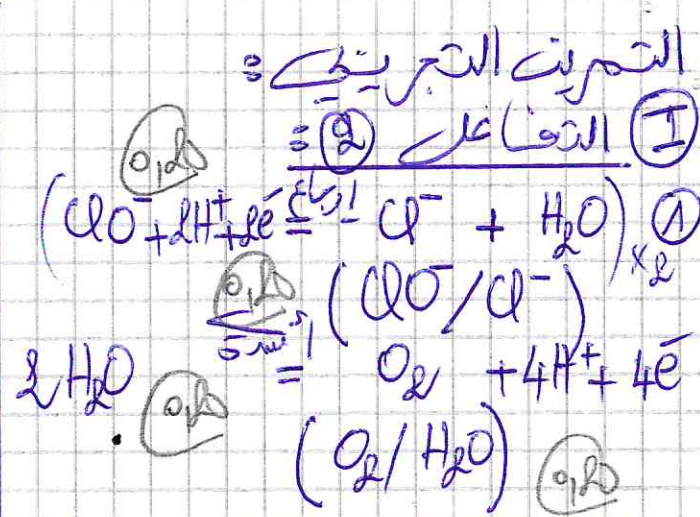 التمرين التجريبي :
Ⅰ التفاعل ② :
0,20
① (ClO⁻ + 2H⁺ + 2e⁻ =ارجاع Cl⁻ + H₂O) ×2
0,20
(ClO⁻/Cl⁻)
2H₂O =أكسدة O₂ + 4H⁺ + 4e⁻
0,20
(O₂/H₂O) 0,20